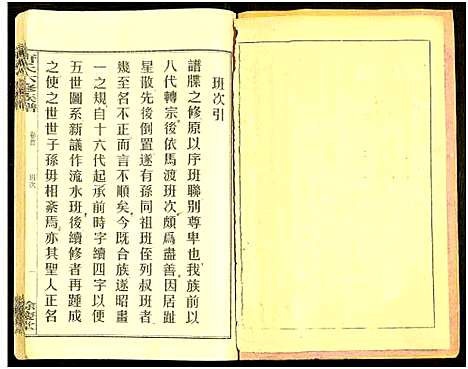 班次引
譜牒之修原以序班聯別尊卑也我族前以
八代轉宗後依馬渡班次頗爲盡善因居趾
星散先後倒置遂有孫同祖班侄列叔班者
幾至名不正而言不順矣今旣合族遂昭畫
一之規自十六代起承前時字續四字以成
五世圖系新議作流水班後續修者再踵成
之使之世世子孫毋相紊焉亦其聖人正名
卷首
班次
一
餘慶堂